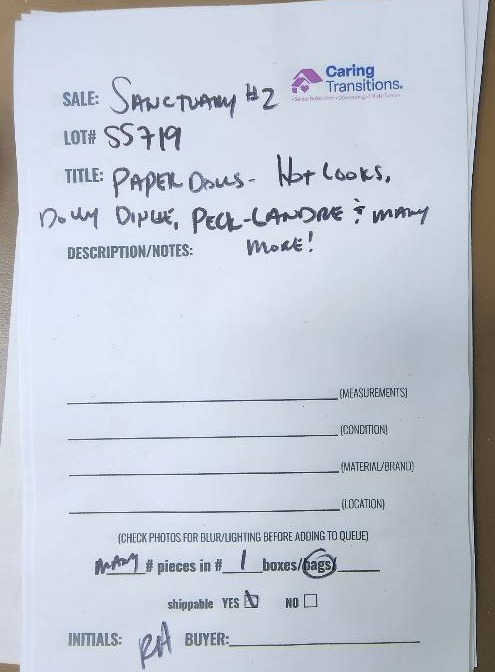 Caring
Transitions®
SALE: SANCTUARY #2
LOT# SS719
TITLE: PAPER DOLLS - HOT LOOKS,
DOLLY DINGLE, PECK-LANDRE & MANY
MORE!
DESCRIPTION/NOTES:
(MEASUREMENTS)
(CONDITION)
(MATERIAL/BRAND)
(LOCATION)
(CHECK PHOTOS FOR BLUR/LIGHTING BEFORE ADDING TO QUEUE)
MANY # pieces in # 1 boxes/bags/
shippable YES NO
INITIALS: RH BUYER: